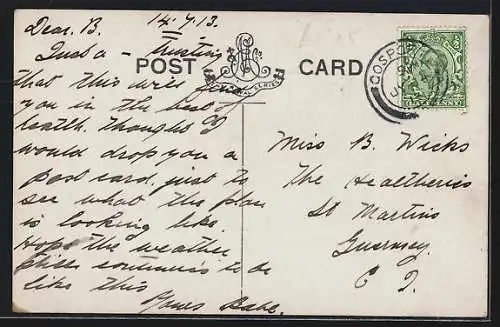 Dear B. 14.7.13.
Just a - Trusting
that this will find
you in the best of
health. thought I
would drop you a
post card, just to
see what the plan
is looking like.
Hope the weather
still continues to be
like this
Yours Babe.
POST CARD
GOSPORT
HALFPENNY
Miss B. Wicks
The Healtheries
St Martins
Guernsey.
C I.